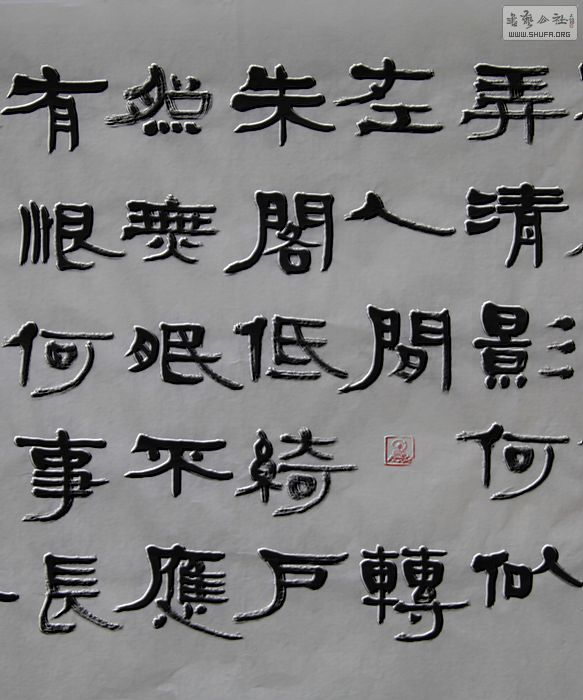 弄清影何似
在人間轉
朱閣低綺戶
照無眠不應
有恨何事長
書藝公社
WWW.SHUFA.ORG